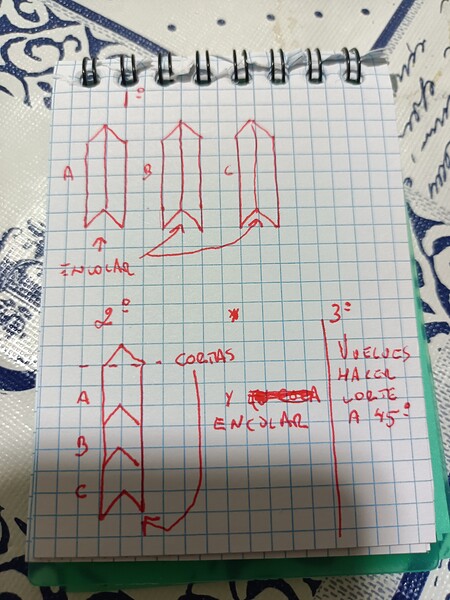 1º
A
B
C
ENCOLAR
2º
CORTAS
A
B
C
*
Y
ENCOLAR
3º
VUELVES
HACER
CORTE
A 45º